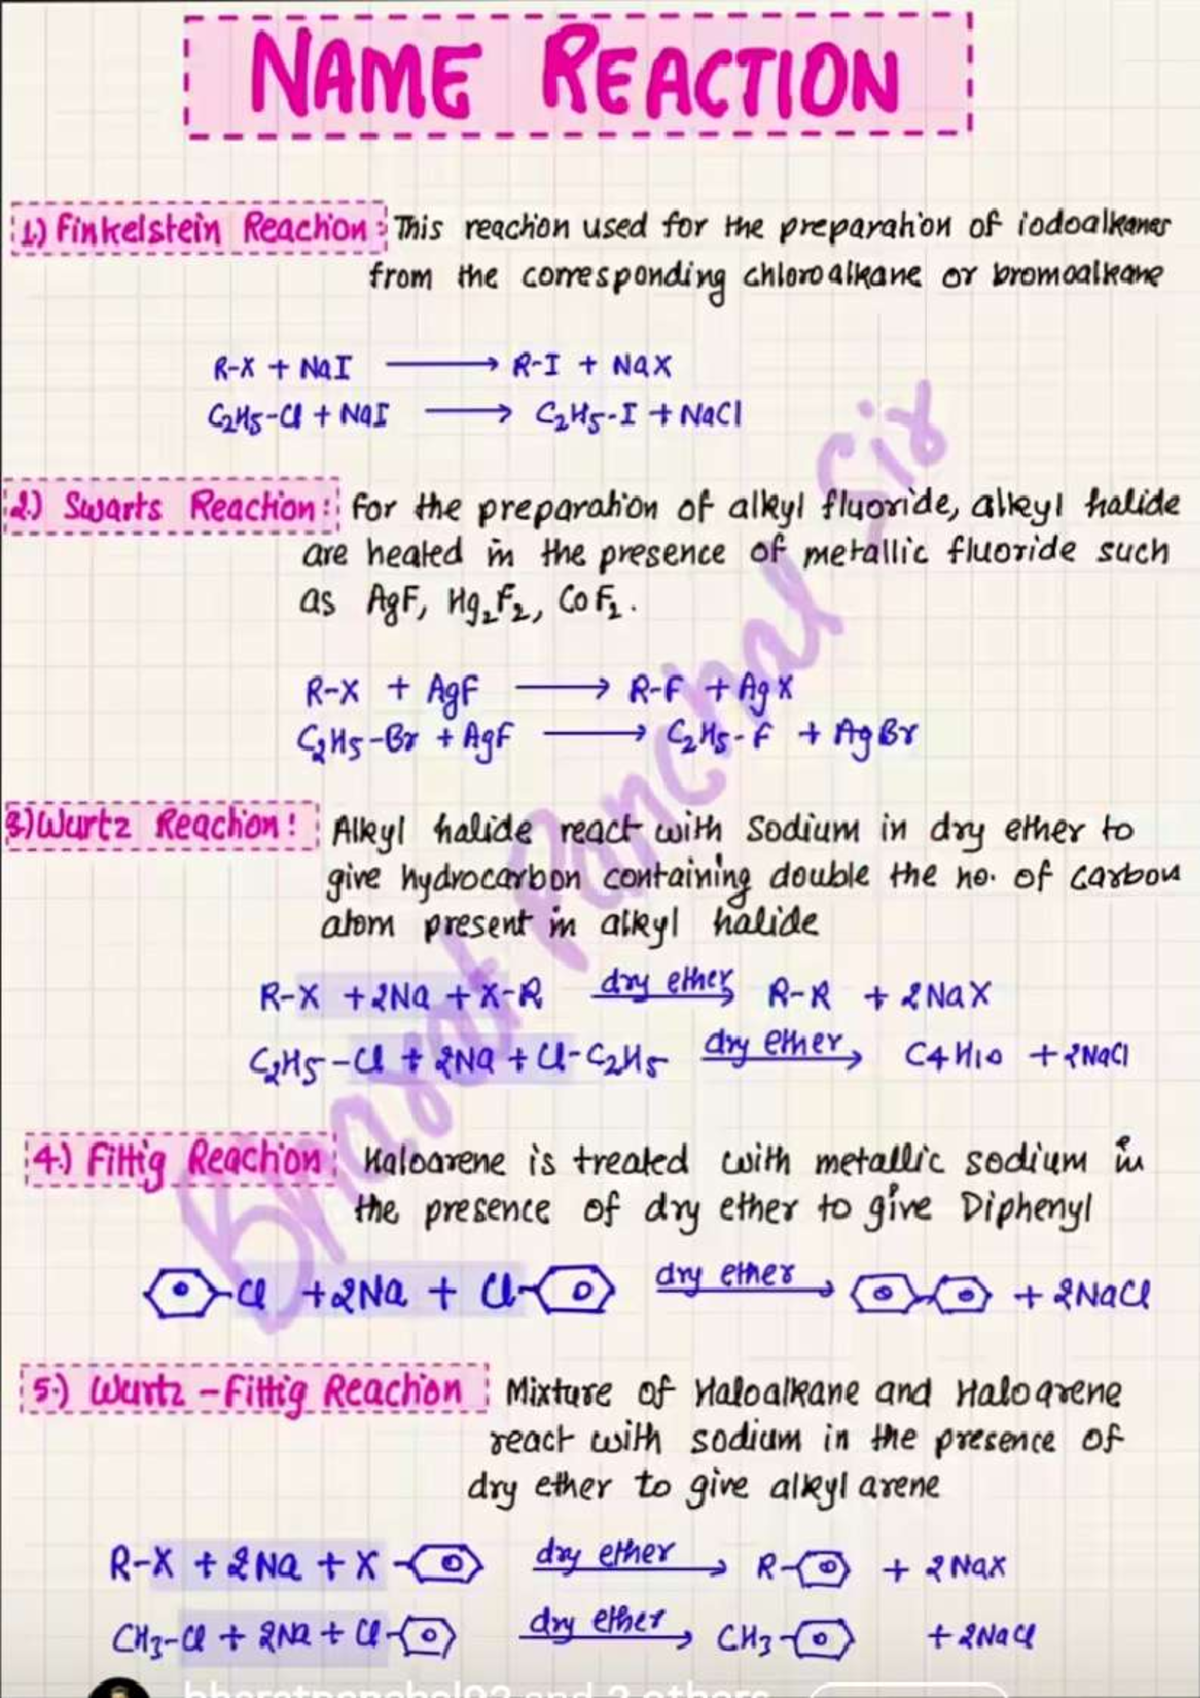 NAME REACTION
1.) Finkelstein Reaction: This reaction used for the preparation of iodoalkanes
from the corresponding chloroalkane or bromoalkane
R-X + NaI ⟶ R-I + NaX
C2H5-Cl + NaI ⟶ C2H5-I + NaCl
2.) Swarts Reaction: for the preparation of alkyl fluoride, alkyl halide
are heated in the presence of metallic fluoride such
as AgF, Hg2F2, CoF2.
R-X + AgF ⟶ R-F + AgX
C2H5-Br + AgF ⟶ C2H5-F + AgBr
3.) Wurtz Reaction: Alkyl halide react with sodium in dry ether to
give hydrocarbon containing double the no. of carbon
atom present in alkyl halide
R-X + 2Na + X-R dry ether⟶ R-R + 2NaX
C2H5-Cl + 2Na + Cl-C2H5 dry ether⟶ C4H10 + 2NaCl
4.) Fittig Reaction: Haloarene is treated with metallic sodium in
the presence of dry ether to give Diphenyl
-Cl + 2Na + Cl- dry ether⟶ + 2NaCl
5.) Wurtz-Fittig Reaction: Mixture of Haloalkane and Haloarene
react with sodium in the presence of
dry ether to give alkyl arene
R-X + 2Na + X- dry ether⟶ R- + 2NaX
CH3-Cl + 2Na + Cl- dry ether⟶ CH3- + 2NaCl
Bharat Panchal Sir
bharatpanchal03 and 2 others